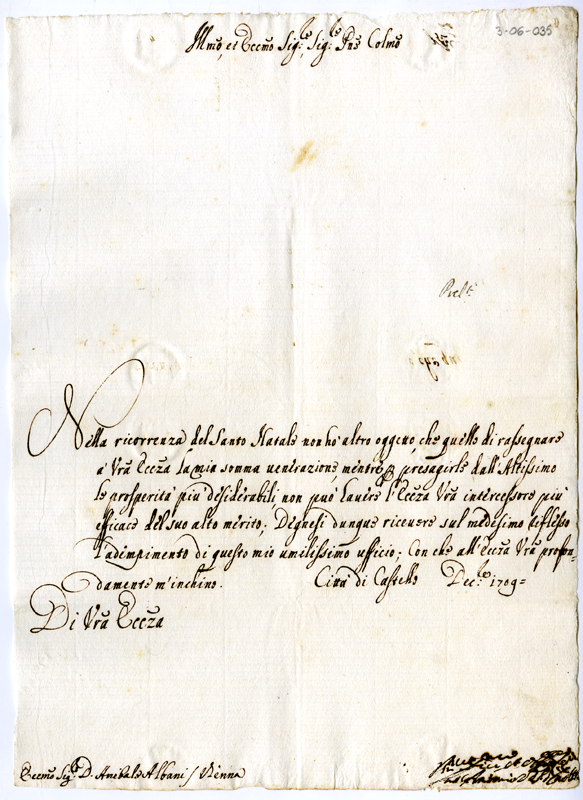 3-06-035
Illmo, et Eccmo Sigre, Sigre Pne Colmo
Nella ricorrenza del Santo Natale non hò altro oggetto, che quello di rassegnare
à Vrã Eccza la mia somma venerazione, mentre p presagirle dall'Altissimo
le prosperità più desiderabili, non può havere l'Eccza Vrã intercessore più
efficace del suo alto mérito; Degnesi dunque ricevere sul medesimo riflesso
l'adempimento di questo mio umilissimo ufficio; Con che all'Eccza Vrã profon-
damente m'inchino. Città di Castello Dec.re 1709=
Di Vrã Eccza
Eccmo Sigre D. Anibale Albani / Vienna